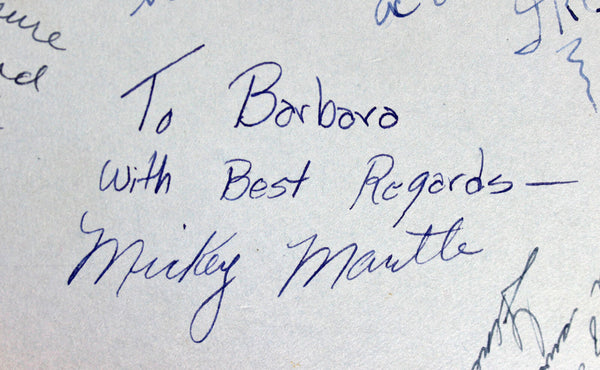 To Barbara
With Best Regards—
Mickey Mantle